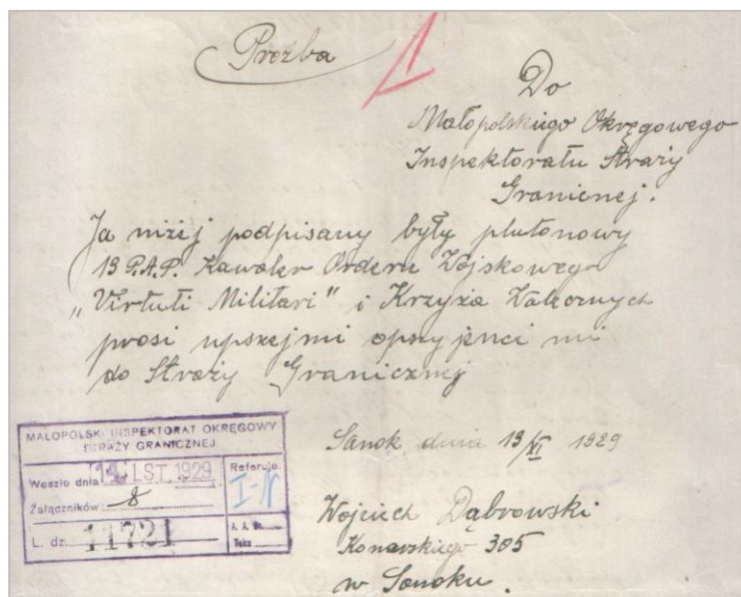 Prozba
Do
Małopolskiego Okręgowego
Inspektoratu Straży
Granicnej.
Ja niżej podpisany były plutonowy
13 P.A.P. Kawaler Orderu Wojskowego
„Virtuti Militari" i Krzyża Walecznych
prosi upszejmi opszyjenci mi
do Straży Granicznej
Sanok dnia 13/XI 1929
Wojciech Dąbrowski
Konarskiego 305
w Sanoku.
MAŁOPOLSKI INSPEKTORAT OKRĘGOWY
STRAŻY GRANICZNEJ
Weszło dnia 14 LST. 1929
Referuje:
I-
Załączników: 8
L. dz. 11721
A. A.